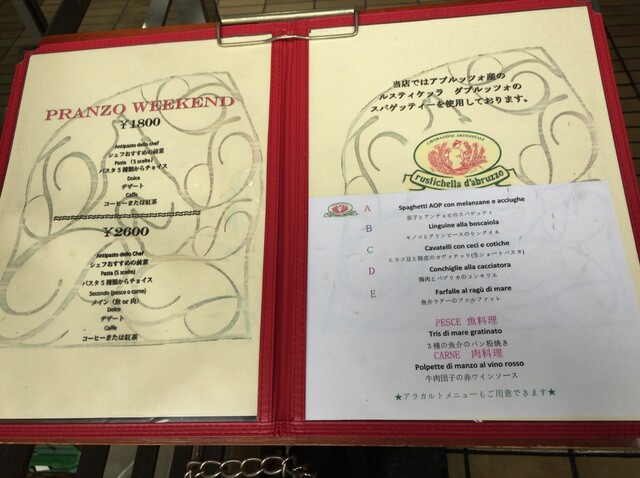 PRANZO WEEKEND
¥1800
Antipasto dello chef
シェフおすすめの前菜
Pasta (5 scelte)
パスタ5種類からチョイス
Dolce
デザート
Caffe
コーヒーまたは紅茶
¥2600
Antipasto dello Chef
シェフおすすめの前菜
Pasta (5 scelte)
パスタ5種類からチョイス
Secondo (pesce o carne)
メイン (魚 or 肉)
Dolce
デザート
Caffe
コーヒーまたは紅茶
当店ではアブルッツォ産の
ルスティケッラ ダブルッツォの
スパゲッティーを使用しております。
rustichella d'abruzzo
A Spaghetti AOP con melanzane e acciughe
茄子とアンチョビのスパゲッティ
B Linguine alla boscaiola
キノコとグリンピースのリングイネ
C Cavatelli con ceci e cotiche
ヒヨコ豆と豚皮のカヴァテッリ(生ショートパスタ)
D Conchiglie alla cacciatora
鶏肉とパプリカのコンキリエ
E Farfalle al ragù di mare
魚介ラグーのファルファッレ
PESCE 魚料理
Tris di mare gratinato
3種の魚介のパン粉焼き
CARNE 肉料理
Polpette di manzo al vino rosso
牛肉団子の赤ワインソース
★アラカルトメニューもご用意できます★